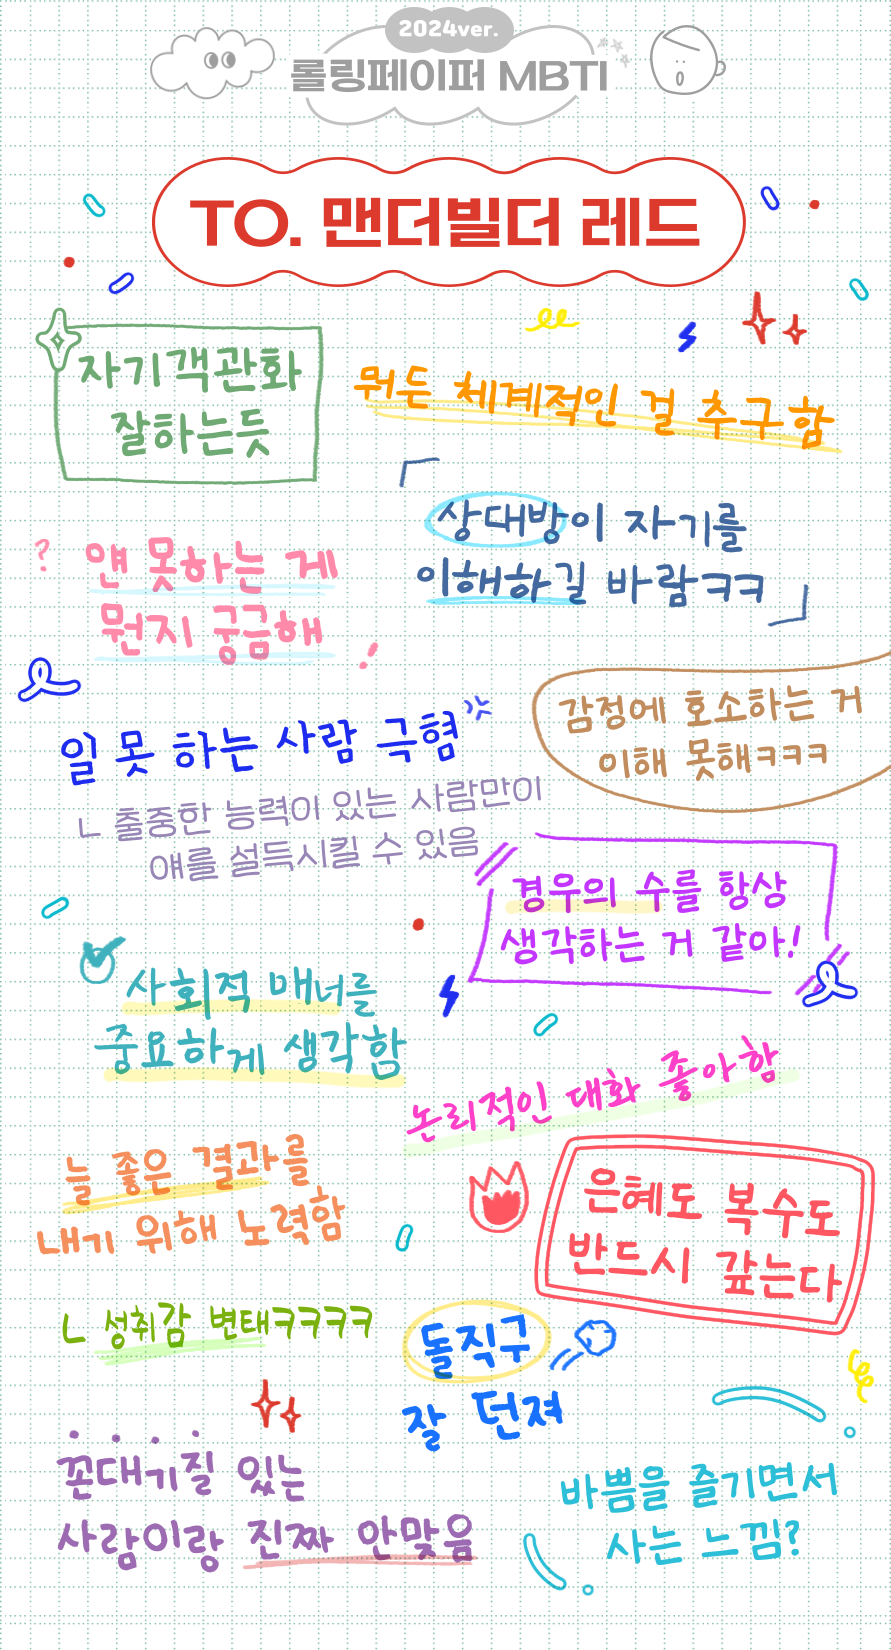 2024ver.
롤링페이퍼 MBTI
TO. 맨더빌더 레드
자기객관화
잘하는듯
뭐든 체계적인 걸 추구함
상대방이 자기를
이해하길 바람ㅋㅋ
?
얜 못하는 게
뭔지 궁금해
!
감정에 호소하는 거
이해 못해ㅋㅋㅋ
일 못 하는 사람 극혐
ㄴ 출중한 능력이 있는 사람만이
얘를 설득시킬 수 있음
경우의 수를 항상
생각하는 거 같아!
사회적 매너를
중요하게 생각함
논리적인 대화 좋아함
늘 좋은 결과를
내기 위해 노력함
은혜도 복수도
반드시 갚는다
ㄴ 성취감 변태ㅋㅋㅋㅋ
돌직구
잘 던져
꼰대기질 있는
사람이랑 진짜 안맞음
바쁨을 즐기면서
사는 느낌?